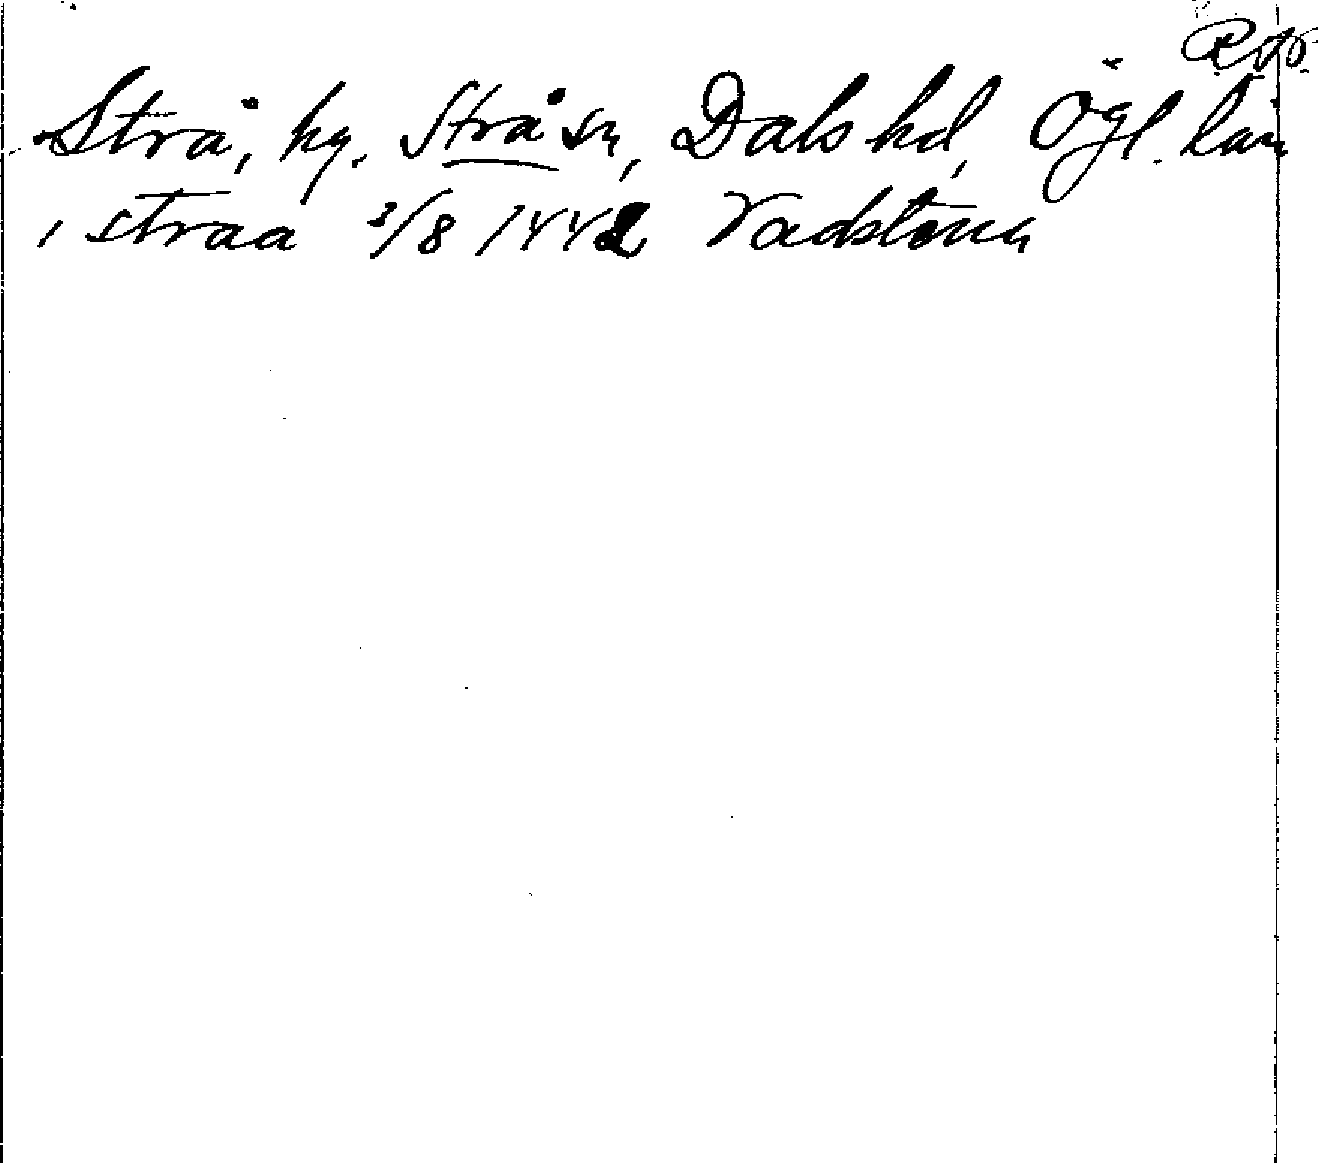 RAp.
Strå, by, Strå sn, Dals hd, Ögl. län
i straa 3/8 1442 Vadstena